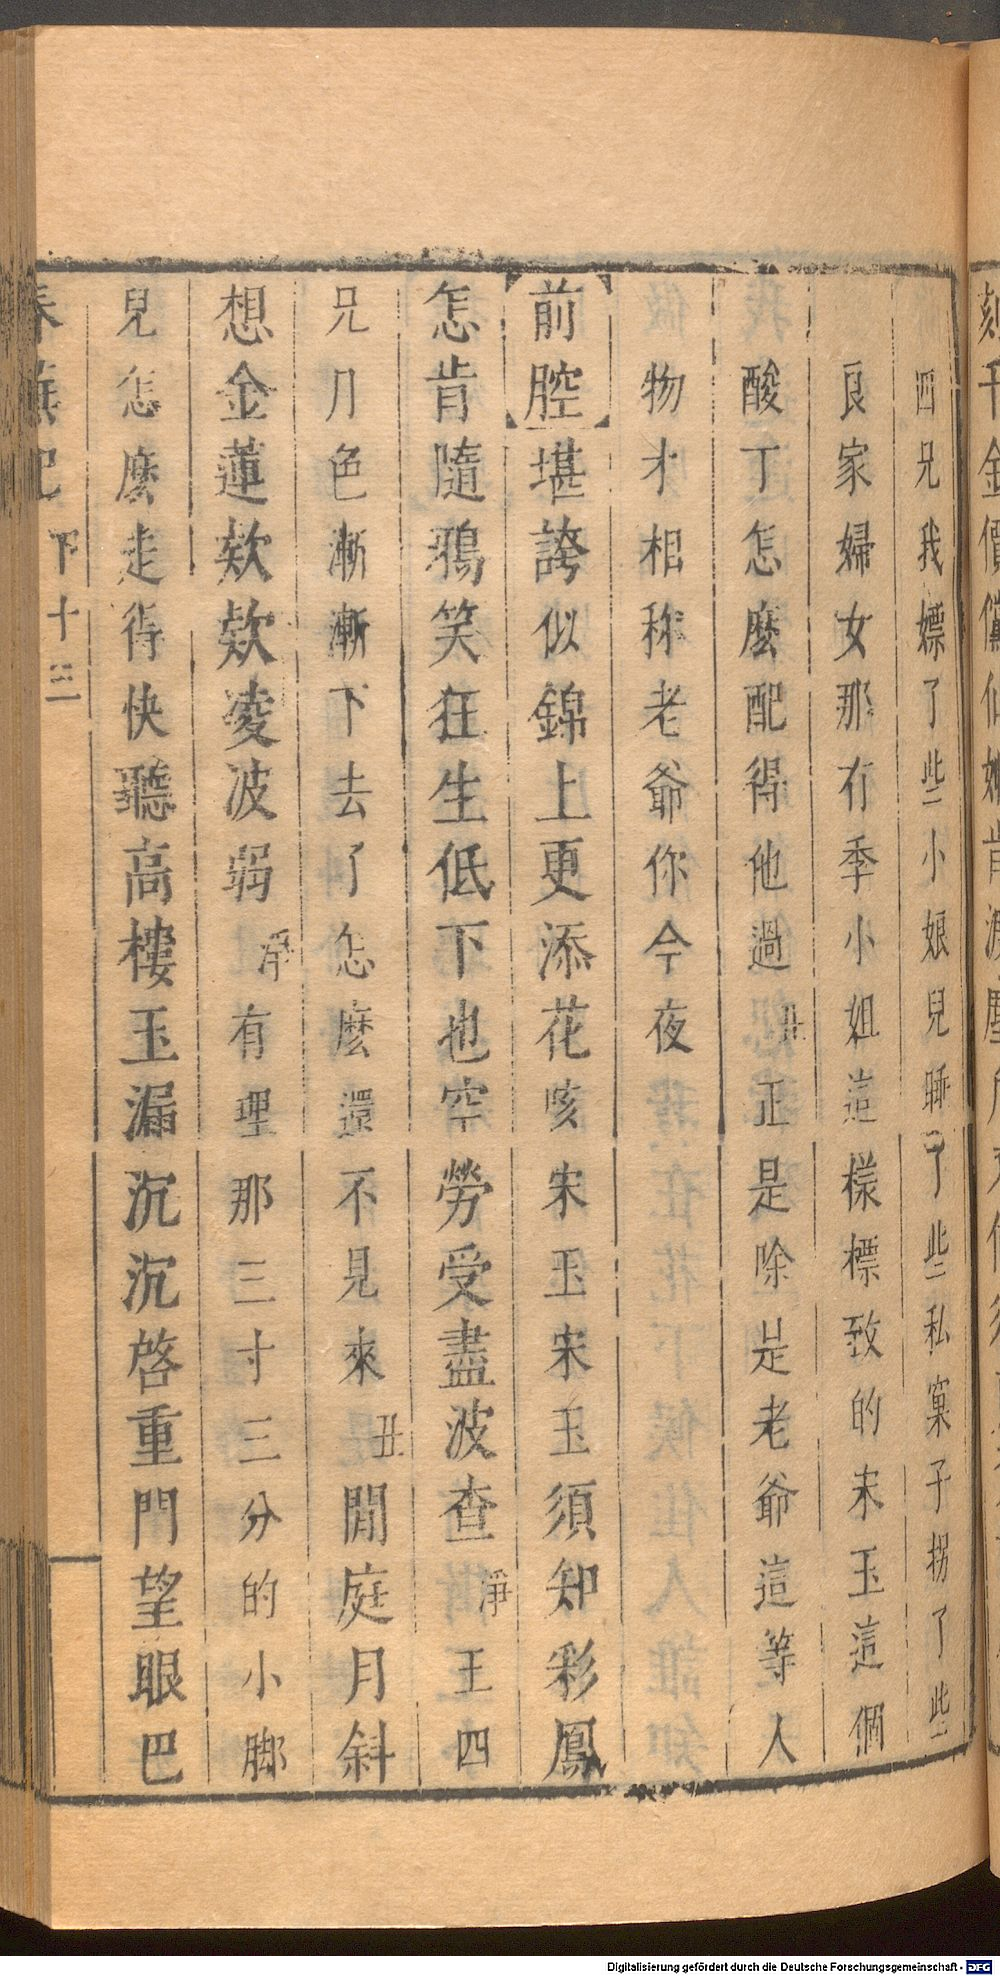 四兄我嫖了些小娘兒睡了些私窠子拐了些
良家婦女那有季小姐這樣標致的宋玉這個
酸丁怎麽配得他過丑正是除是老爺這等人
物才相称老爺你今夜
前腔堪誇似錦上更添花咳宋玉宋玉須知彩鳳
怎肯隨鴉笑狂生低下也空勞受盡波查淨王四
兄月色漸漸下去了怎麽還不見來丑閒庭月斜
想金蓮欵欵凌波弱淨有理那三寸三分的小脚
兒怎麽走得快聽高樓玉漏沉沉啓重門望眼巴
春蕪記 下 十三
Digitalisierung gefördert durch die Deutsche Forschungsgemeinschaft - DFG